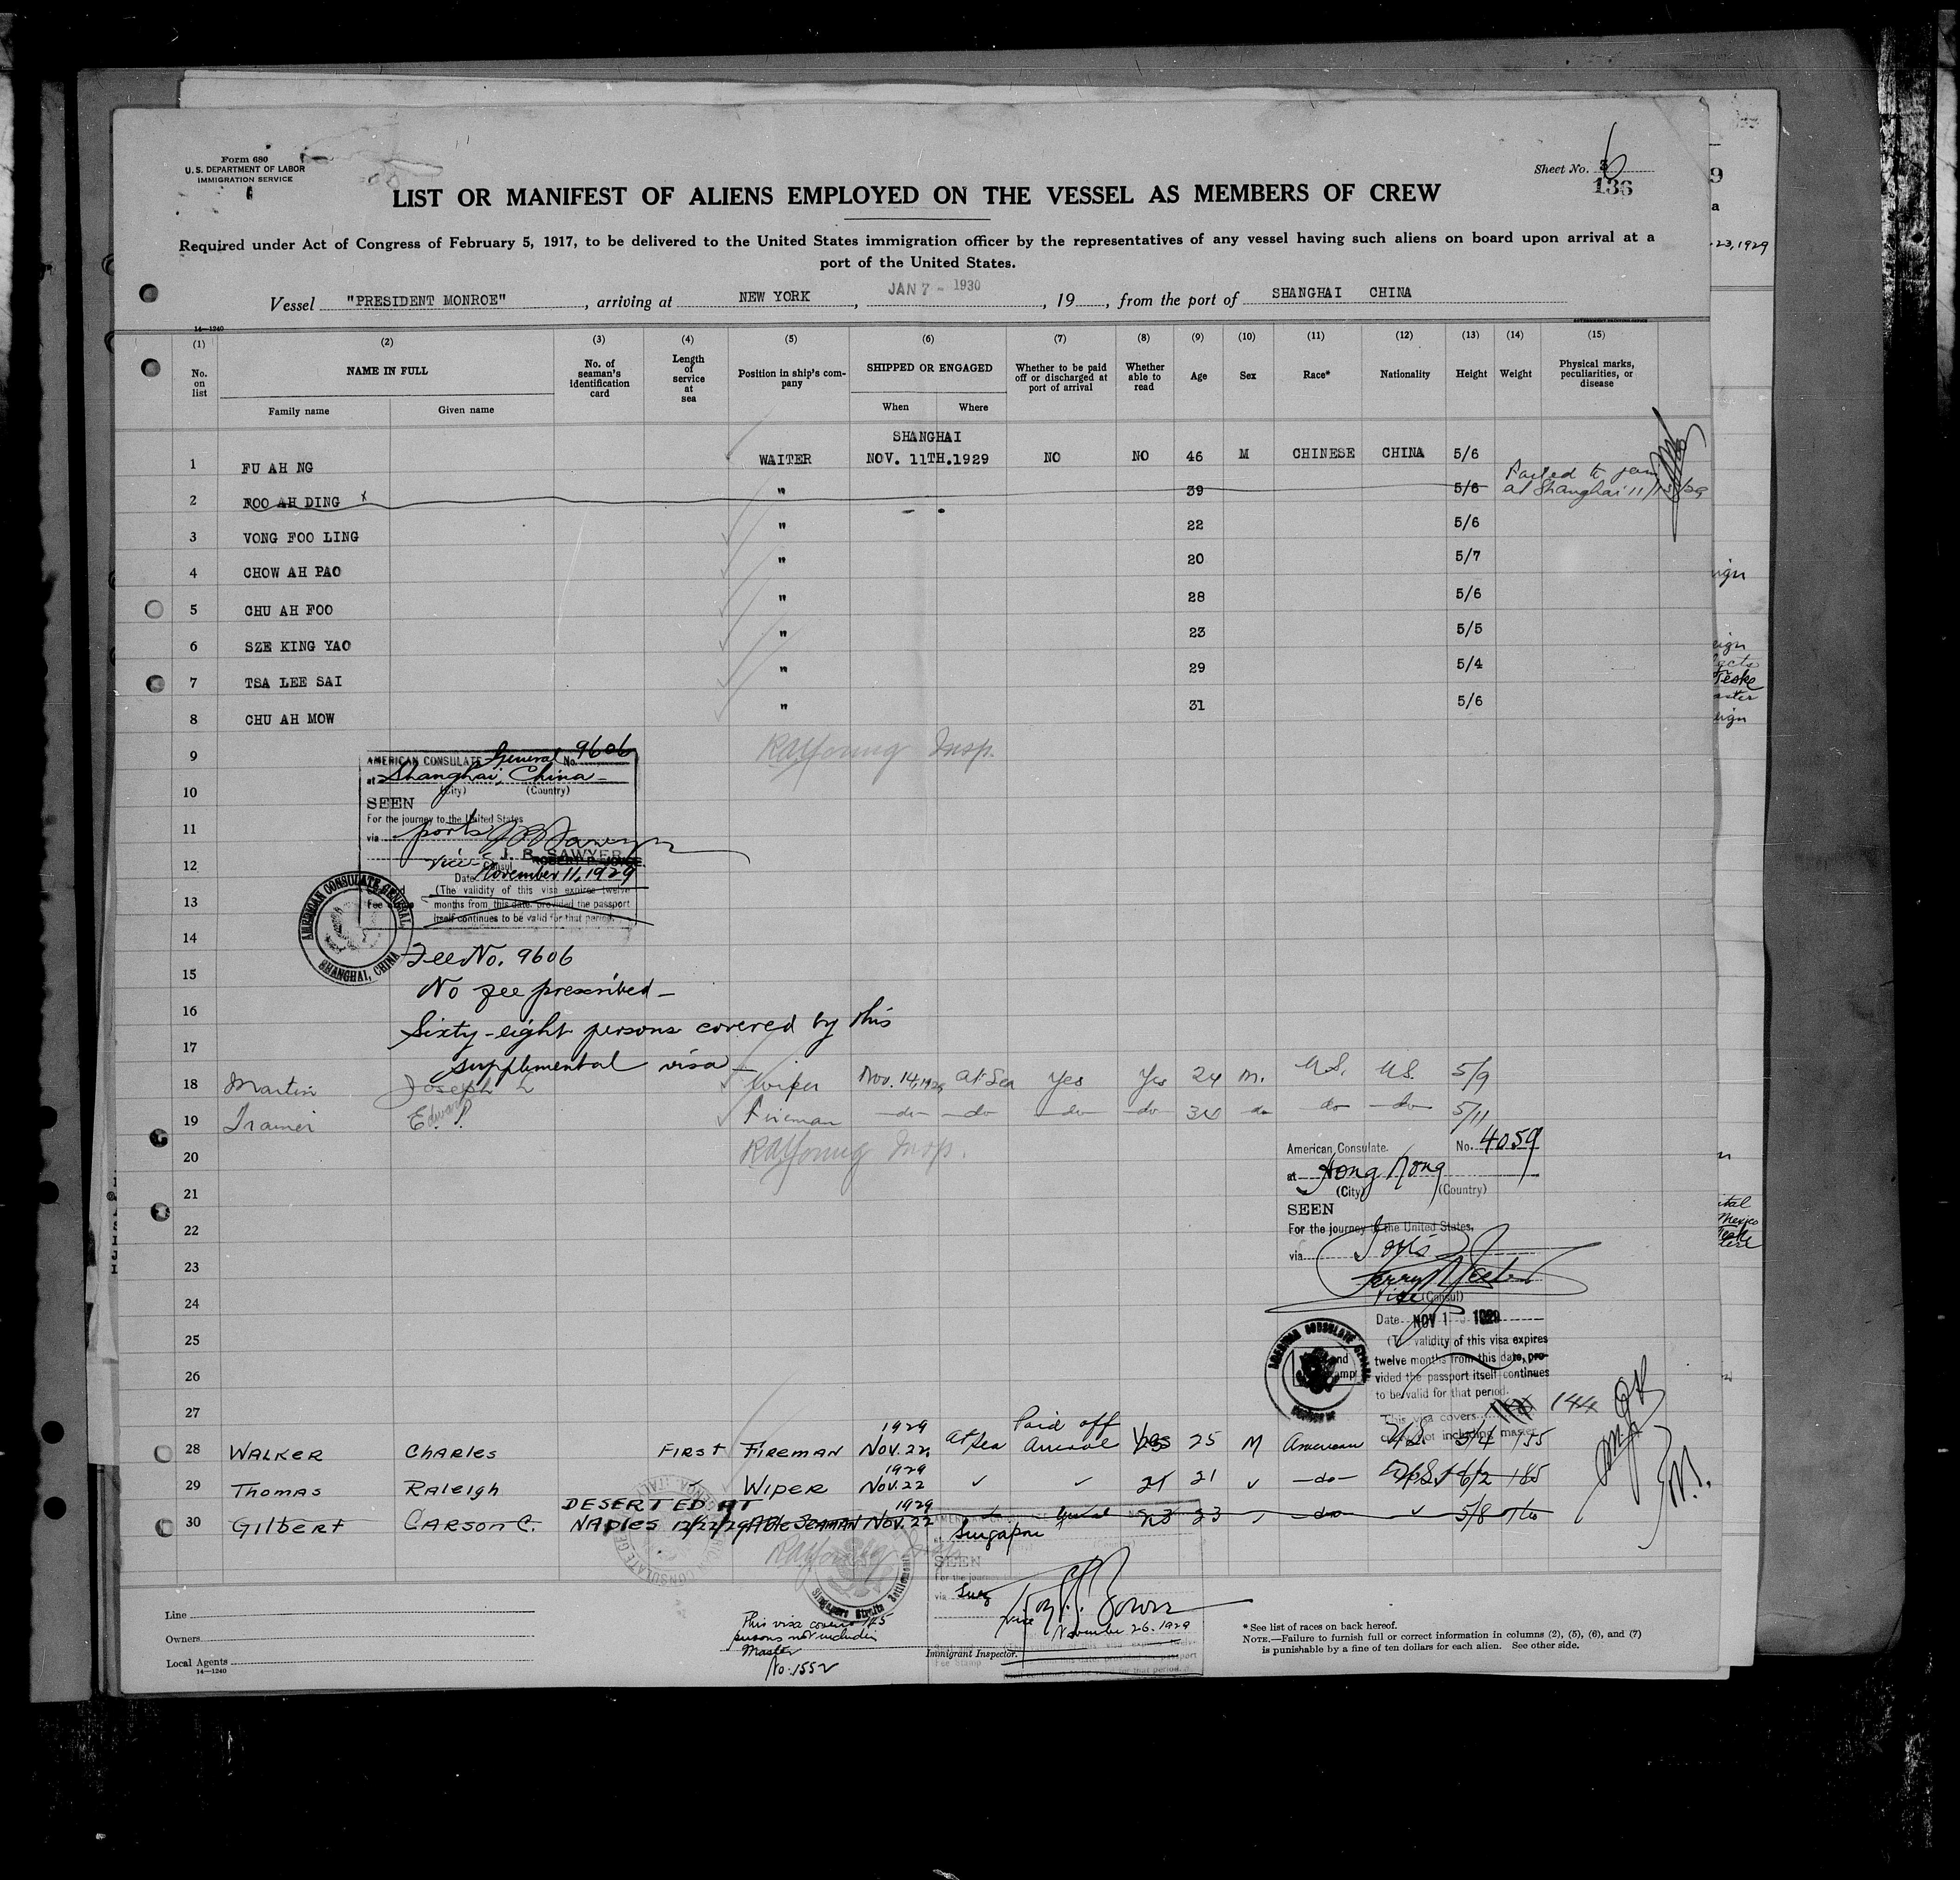 Form 680
U. S. DEPARTMENT OF LABOR
IMMIGRATION SERVICE
Sheet No. 6
136
LIST OR MANIFEST OF ALIENS EMPLOYED ON THE VESSEL AS MEMBERS OF CREW
Required under Act of Congress of February 5, 1917, to be delivered to the United States immigration officer by the representatives of any vessel having such aliens on board upon arrival at a
port of the United States.
Vessel "PRESIDENT MONROE", arriving at NEW YORK, JAN 7 - 1930, 19, from the port of SHANGHAI CHINA
14—1240
(1) (2) (3) (4) (5) (6) (7) (8) (9) (10) (11) (12) (13) (14) (15)
No. on list
NAME IN FULL
Family name
Given name
No. of seaman's identification card
Length of service at sea
Position in ship's company
SHIPPED OR ENGAGED
When
Where
Whether to be paid off or discharged at port of arrival
Whether able to read
Age
Sex
Race*
Nationality
Height
Weight
Physical marks, peculiarities, or disease
SHANGHAI
1 FU AH NG WAITER NOV. 11TH.1929 NO NO 46 M CHINESE CHINA 5/6
2 FOO AH DING x " 39 5/6 Failed to join
at Shanghai 11/13/29
3 VONG FOO LING " 22 5/6
4 CHOW AH PAO " 20 5/7
5 CHU AH FOO " 28 5/6
6 SZE KING YAO " 23 5/5
7 TSA LEE SAI " 29 5/4
8 CHU AH MOW " 31 5/6
9
RAYoung Insp.
10
11
12
13
14
15
16
17
AMERICAN CONSULATE General No. 9606
at Shanghai, China
(City) (Country)
SEEN
For the journey to the United States
via ports
J. B. SAWYER
vice Consul
Date November 11, 1929
(The validity of this visa expires twelve
months from this date, provided the passport
itself continues to be valid for that period.
AMERICAN CONSULATE GENERAL
SHANGHAI, CHINA
Fee No. 9606
No fee prescribed
Sixty-eight persons covered by this
supplimental visa
18 Martin Joseph L Wiper Nov. 14, 1929 at Sea Yes Yes 24 M. U.S. U.S. 5/9
19 Trainer Edward P. Fireman do do do do do do do 5/11
20
RAYoung Insp.
21
22
23
24
25
26
27
American Consulate. No. 4059
at Hong Kong
(City) (Country)
SEEN
For the journey to the United States,
via Ports
Vice (Consul)
Date NOV 1 1929
validity of this visa expires
twelve months from this date, pro-
vided the passport itself continues
to be valid for that period.
This visa covers 144
not including master
28 WALKER CHARLES FIRST FIREMAN 1929 NOV. 22, at Sea Paid off Arrival Yes 25 M American U.S. 5/4 155
29 THOMAS RALEIGH WIPER 1929 NOV. 22 21 do 6/2 185
DESERTED AT
30 GILBERT CARSON C. NAPLES 12/22/29 ABLE SEAMAN 1929 NOV. 22 23 do 5/8
RAYoung Insp.
Singapore
SEEN
For the journey
via Suez
Vice
November 26. 1929
Singapore Straits Settlements
This visa covers 145
persons not including
Master
No. 1552
Line
Owners
Local Agents
14—1240
Immigrant Inspector.
* See list of races on back hereof.
NOTE.—Failure to furnish full or correct information in columns (2), (5), (6), and (7)
is punishable by a fine of ten dollars for each alien. See other side.